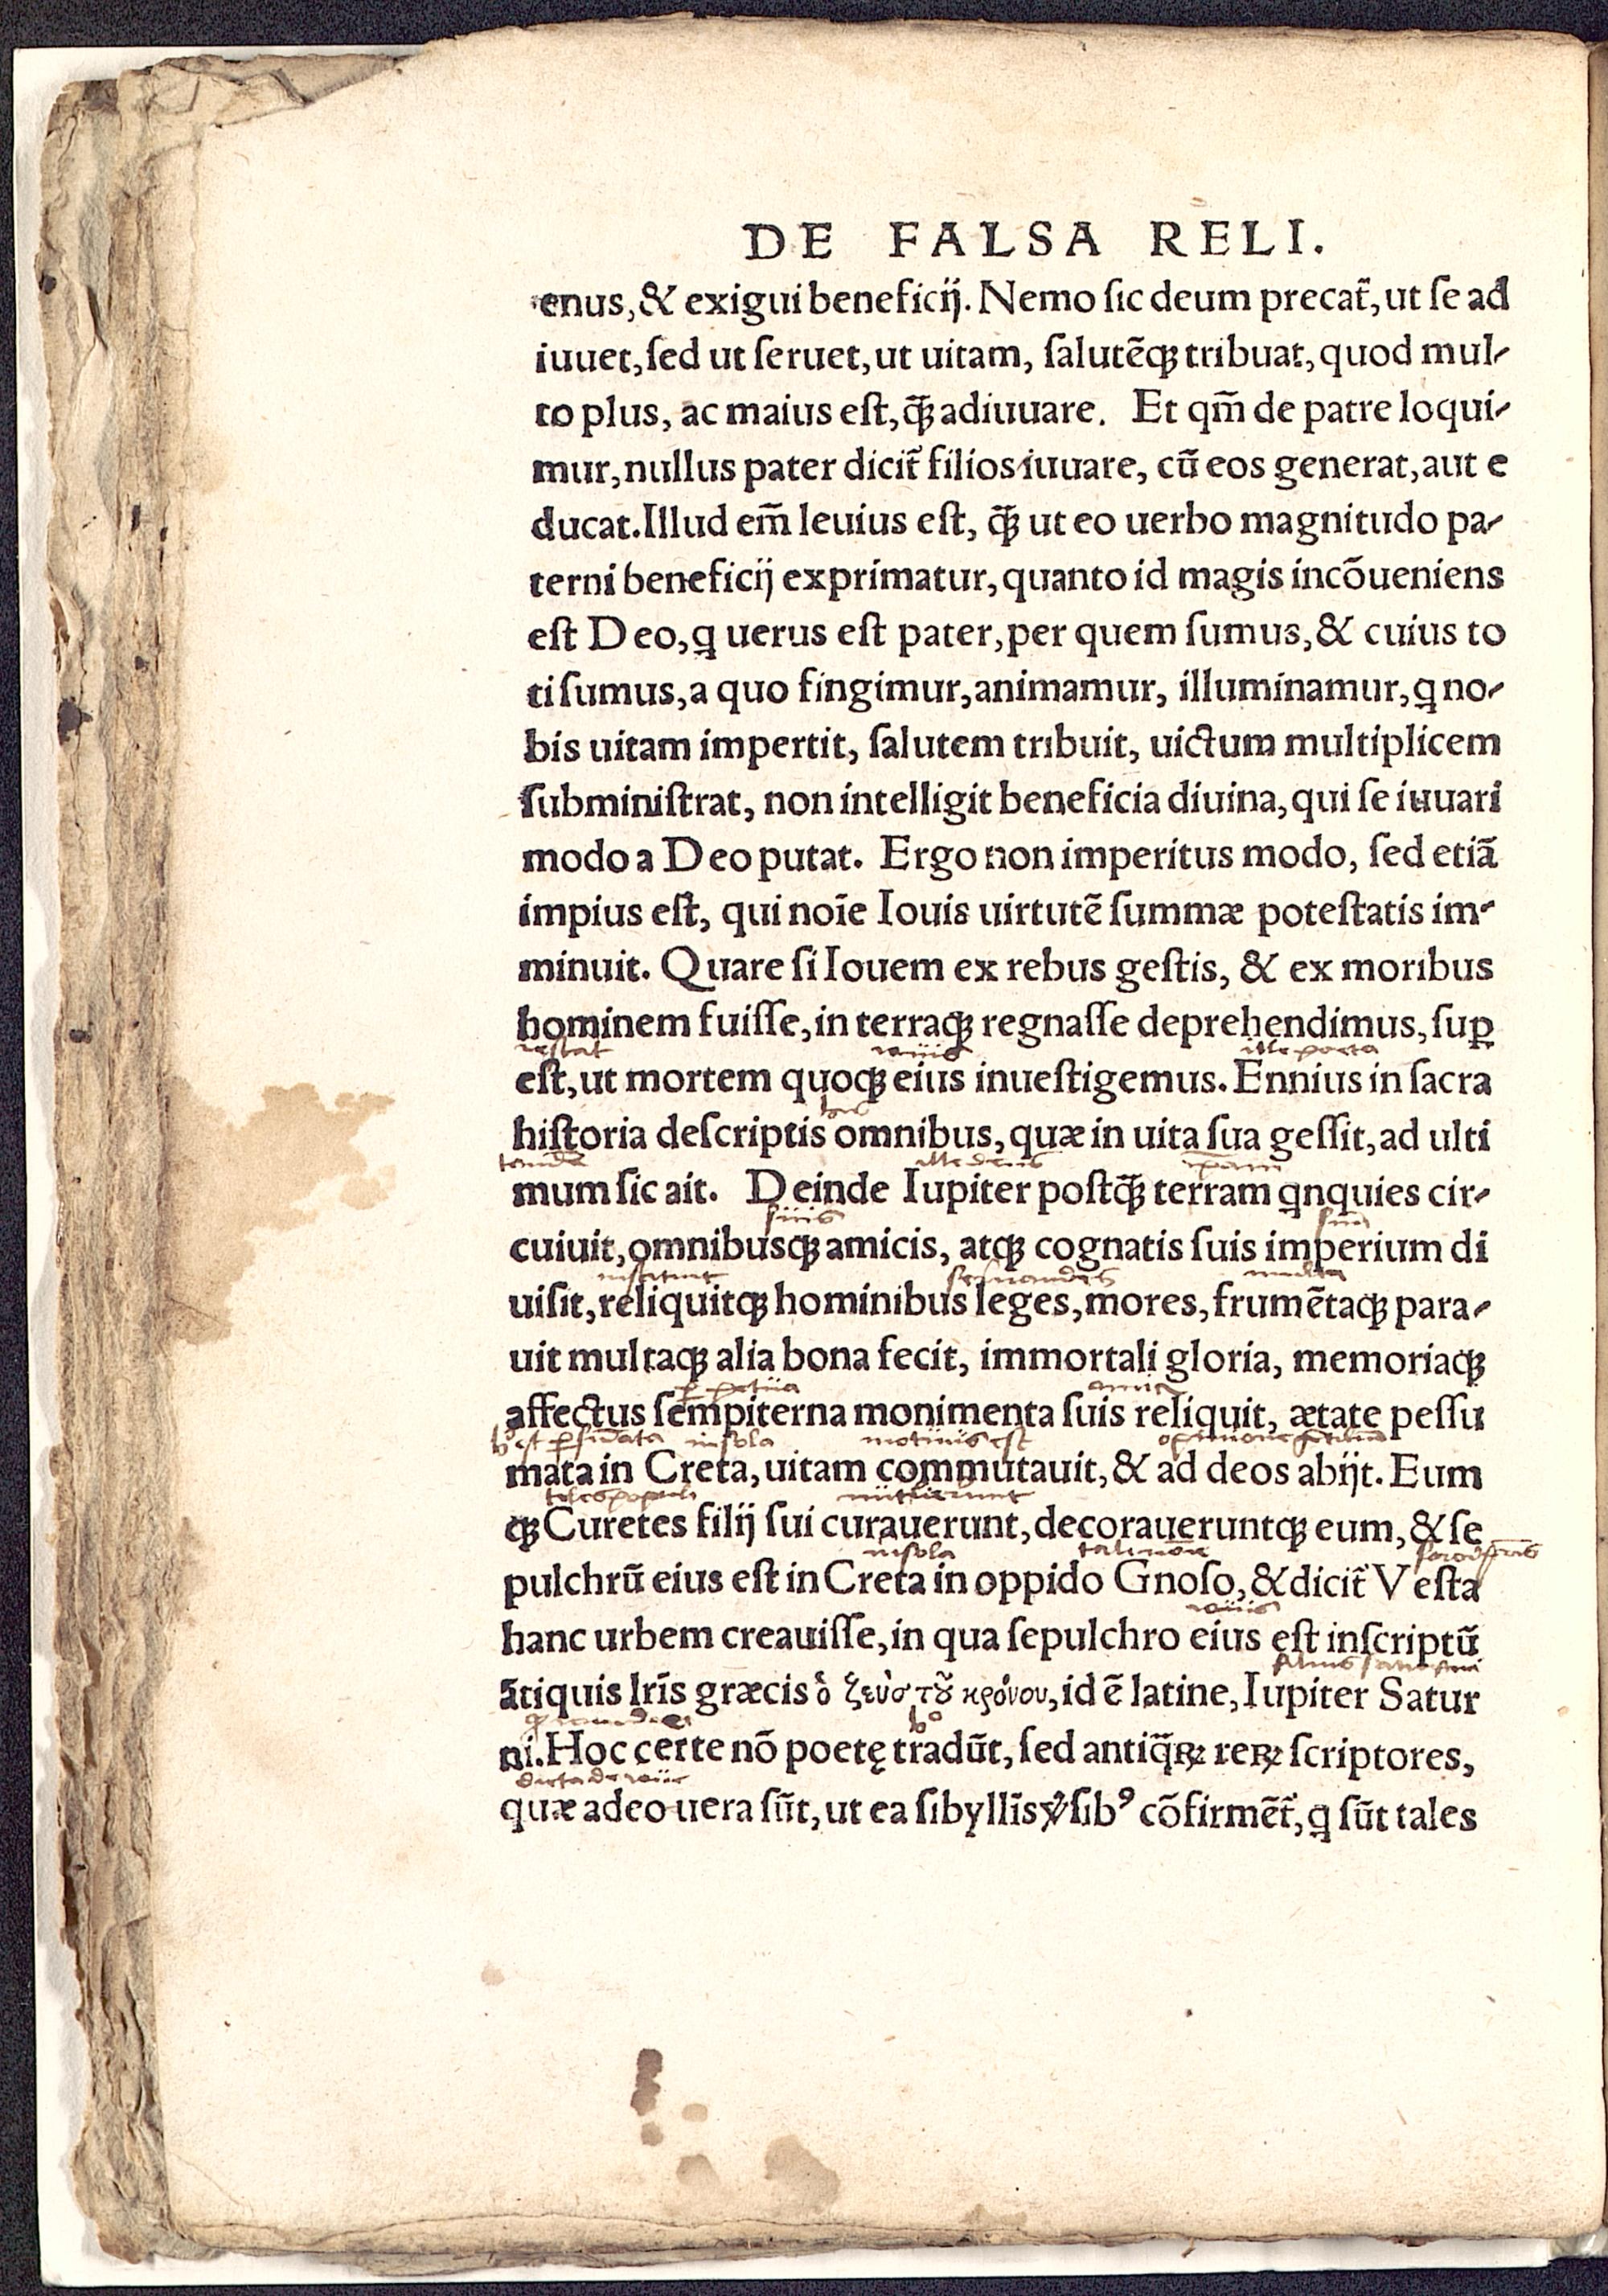 DE FALSA RELI.
enus, & exigui beneficij. Nemo ſic deum precat̃, ut ſe ad
iuuet, ſed ut ſeruet, ut uitam, ſalutẽqꝫ tribuat, quod mul-
to plus, ac maius eſt, q̃ꝫ adiuuare. Et qm̃ de patre loqui-
mur, nullus pater dicit̃ filios iuuare, cũ eos generat, aut e
ducat. Illud em̃ leuius eſt, q̃ꝫ ut eo uerbo magnitudo pa-
terni beneficij exprimatur, quanto id magis incõueniens
eſt Deo, q uerus eſt pater, per quem ſumus, & cuius to
ti ſumus, a quo fingimur, animamur, illuminamur, q no-
bis uitam impertit, ſalutem tribuit, uictum multiplicem
ſubminiſtrat, non intelligit beneficia diuina, qui ſe iuuari
modo a Deo putat. Ergo non imperitus modo, ſed etiã
impius eſt, qui noĩe Iouis uirtutẽ ſummæ poteſtatis im-
minuit. Quare ſi Iouem ex rebus geſtis, & ex moribus
hominem fuiſſe, in terraqꝫ regnaſſe deprehendimus, ſuꝑ
reſtat ille poeta
eſt, ut mortem quoqꝫ eius inueſtigemus. Ennius in ſacra
hiſtoria deſcriptis omnibus, quæ in uita ſua geſſit, ad ulti
mum ſic ait. Deinde Iupiter poſtq̃ꝫ terram qnquies cir-
ſuis
cuiuit, omnibusqꝫ amicis, atqꝫ cognatis ſuis imperium di
uiſit, reliquitqꝫ hominibus leges, mores, frumẽtaqꝫ para-
uit multaqꝫ alia bona fecit, immortali gloria, memoriaqꝫ
affectus ſempiterna monimenta ſuis reliquit, ætate peſſu
inſola
mata in Creta, uitam commutauit, & ad deos abijt. Eum
qꝫ Curetes filij ſui curauerunt, decoraueruntqꝫ eum, & ſe
inſola
pulchrũ eius eſt in Creta in oppido Gnoſo, & dicit̃ Veſta
hanc urbem creauiſſe, in qua ſepulchro eius eſt inſcriptũ
ãtiquis lr̃is græcis ὁ ζεὺσ τοῦ κρόνου, id ẽ latine, Iupiter Satur
ni. Hoc certe nõ poetę tradũt, ſed antiq̃ꝝ reꝝ ſcriptores,
quæ adeo uera ſũt, ut ea ſibyllĩs ꝟſibꝰ cõfirmẽt̃, q ſũt tales